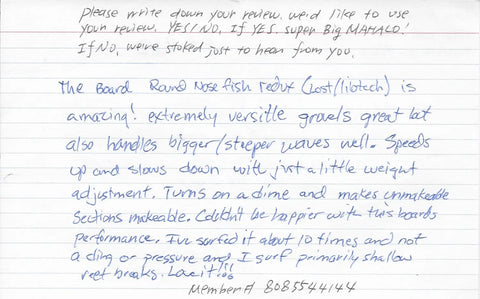 please write down your review. we'd like to use
your review. YES/NO. If YES. super Big MAHALO!
If No, we're stoked just to hear from you.
The Board Round Nose fish redux (Lost/libtech) is
amazing! extremely versitle grovels great but
also handles bigger/steeper waves well. Speeds
up and slows down with just a little weight
adjustment. Turns on a dime and makes unmakeable
Sections makeable. Couldn't be happier with this boards
performance. I've surfed it about 10 times and not
a ding or pressure and I surf primarily shallow
reef breaks. Love it!!!
Member# 8085544144